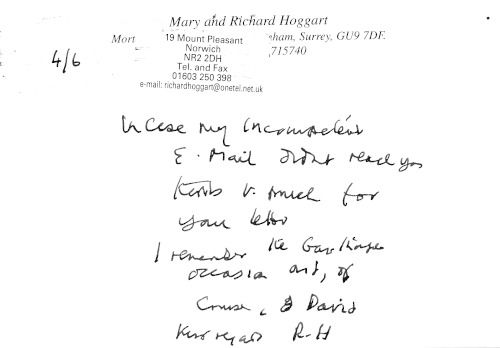 Mary and Richard Hoggart
Mort ham, Surrey, GU9 7DF.
715740
19 Mount Pleasant
Norwich
NR2 2DH
Tel. and Fax
01603 250 398
e-mail: richardhoggart@onetel.net.uk
4/6
In case my incompetent
E-Mail didnt reach you
v. much for
your letter
I remember the
occasion and, of
Course, David
R-H